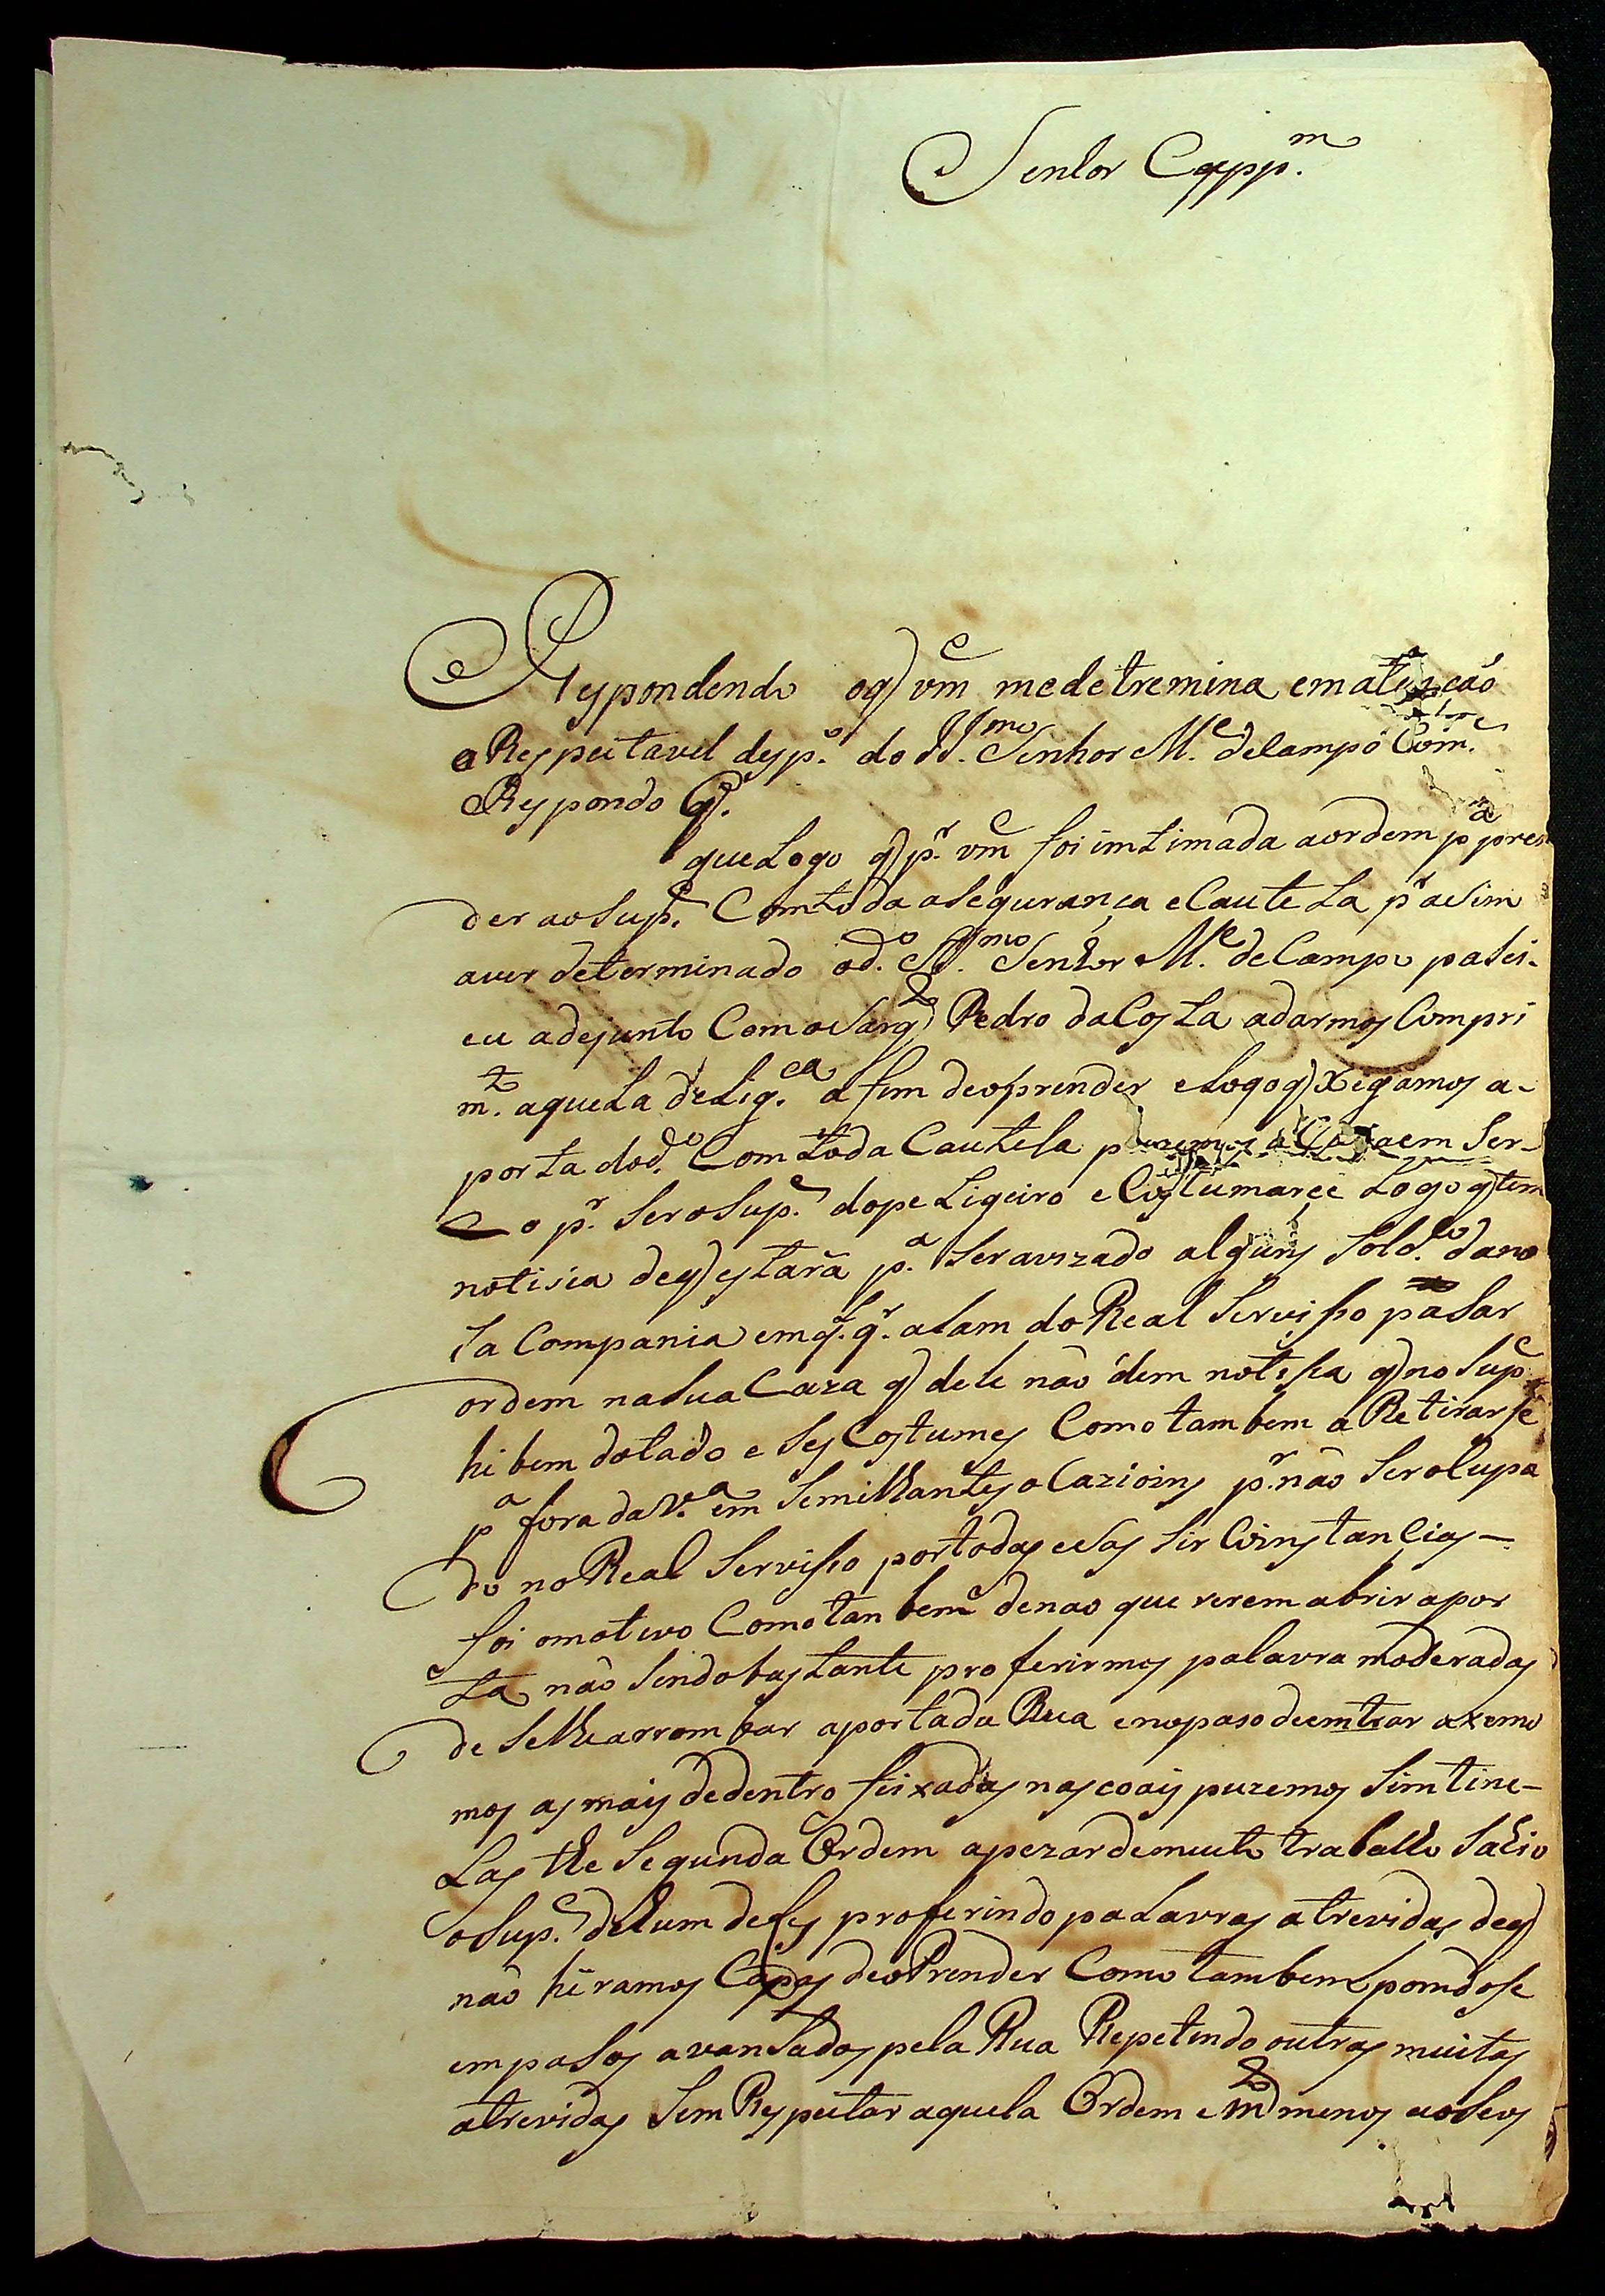 Senhor Capp.m
Respondendo oq vm.e medetremina ematenção
aRespeitavel desp.o do Il.mo Senhor M.e deCampo Com.e
Respondo q.
queLogo q p.r vm.e foi intimada aordem p.a pren
der aoSup.e ComtodaaSegurança eCauteLa p.r aSim
aver determinado od.o Il.mo Senhor M.e deCampo paSei-
eu adejunto ComoSarg.to Pedro daCosta adarmos Compri
m.to aqueLa deLig.ca afim deoprender eLogoq xegamos a-
porta dod.o Com toda Cautela puzemos aCazaem Ser-
Co p.r SeroSup.e dope Ligeiro eCostumarçe Logo q tem
notisia deq estará p.a Seravizado alguns Sold.o dano
Sa Compania em q.l q.r aSam doReal Servisso paSar
ordem naSuaCaza q dele não dem notissa q no Sup.e
hé bem dotado e Ses Costumes Como tambem a Retirarse
p.a fora daV.a em Semilhantes oCazioins p.r não SeroCupa
do noReal Servisso portodas eSas SirConstanCias-
foi omotivo Comotanbem denao quererem abrir apor
ta não Sendobastante proferirmos palavra moderadas
de Selhearrombar aportada Rua enopaso deemtrar axemo
mos as mais dedentro feixadas nas coais puzemos Simtine-
Las the Segunda Ordem apezardemuito trabalho Sahio
oSup.e dehum desses proferindo paLavras atrevidas deq
não hèramos Capas deoPrender Como tambem pomdose
empaSos avanSados pela Rua Repetindo outras muitas
atrevidas Sem Respeitar aquela Ordem em.to menos aoSeos